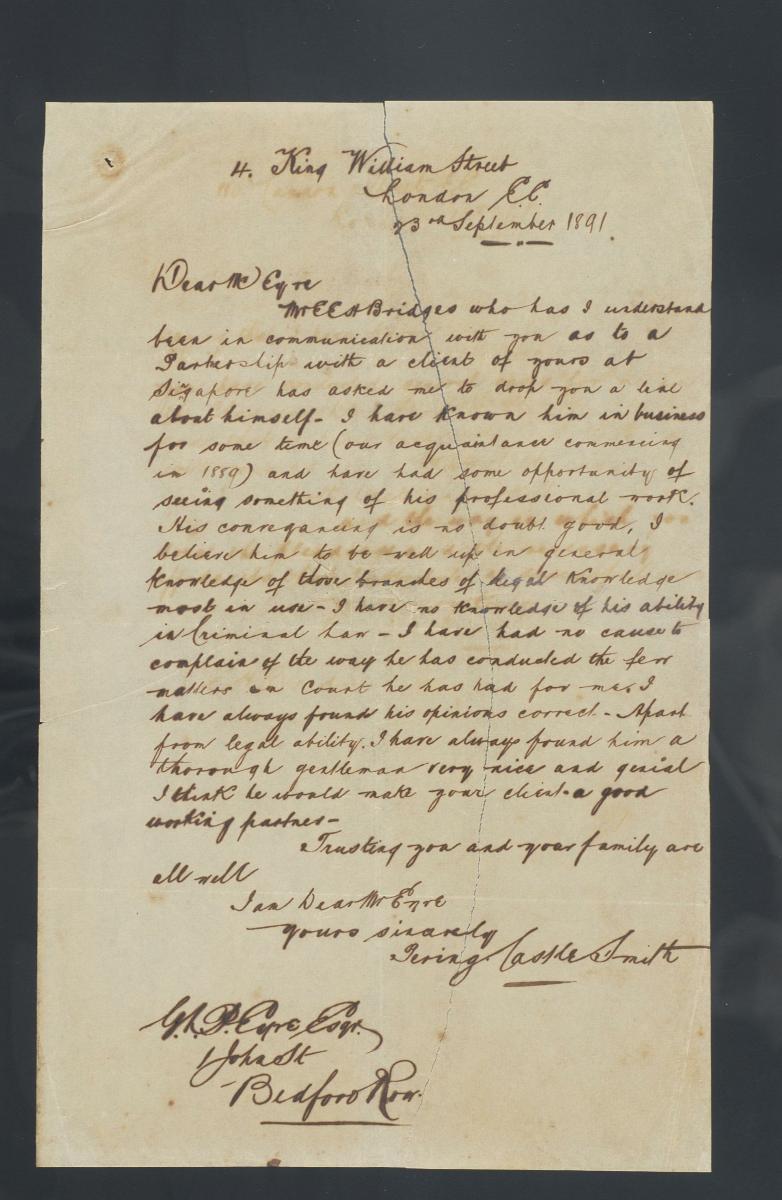 4. King William Street
London E.C.
23rd September 1891.
Dear Mr Eyre
Mr E E H Bridges who has I understand
been in communication with you as to a
Partnership with a client of yours at
Singapore has asked me to drop you a line
about himself - I have known him in business
for some time (our acquaintance commencing
in 1889) and have had some opportunity of
seeing something of his professional work.
His conveyancing is no doubt good, I
believe him to be well up in general
knowledge of those branches of legal knowledge
most in use - I have no knowledge of his ability
in Criminal law - I have had no cause to
complain of the way he has conducted the few
matters in Court he has had for me. I
have always found his opinions correct - Apart
from legal ability. I have always found him a
thorough gentleman very nice and genial
I think he would make your client a good
working partner -
Trusting you and your family are
all well
I am Dear Mr Eyre
yours sincerely
Castle Smith
Eyre, Esqr.
1 John St
Bedford Row.